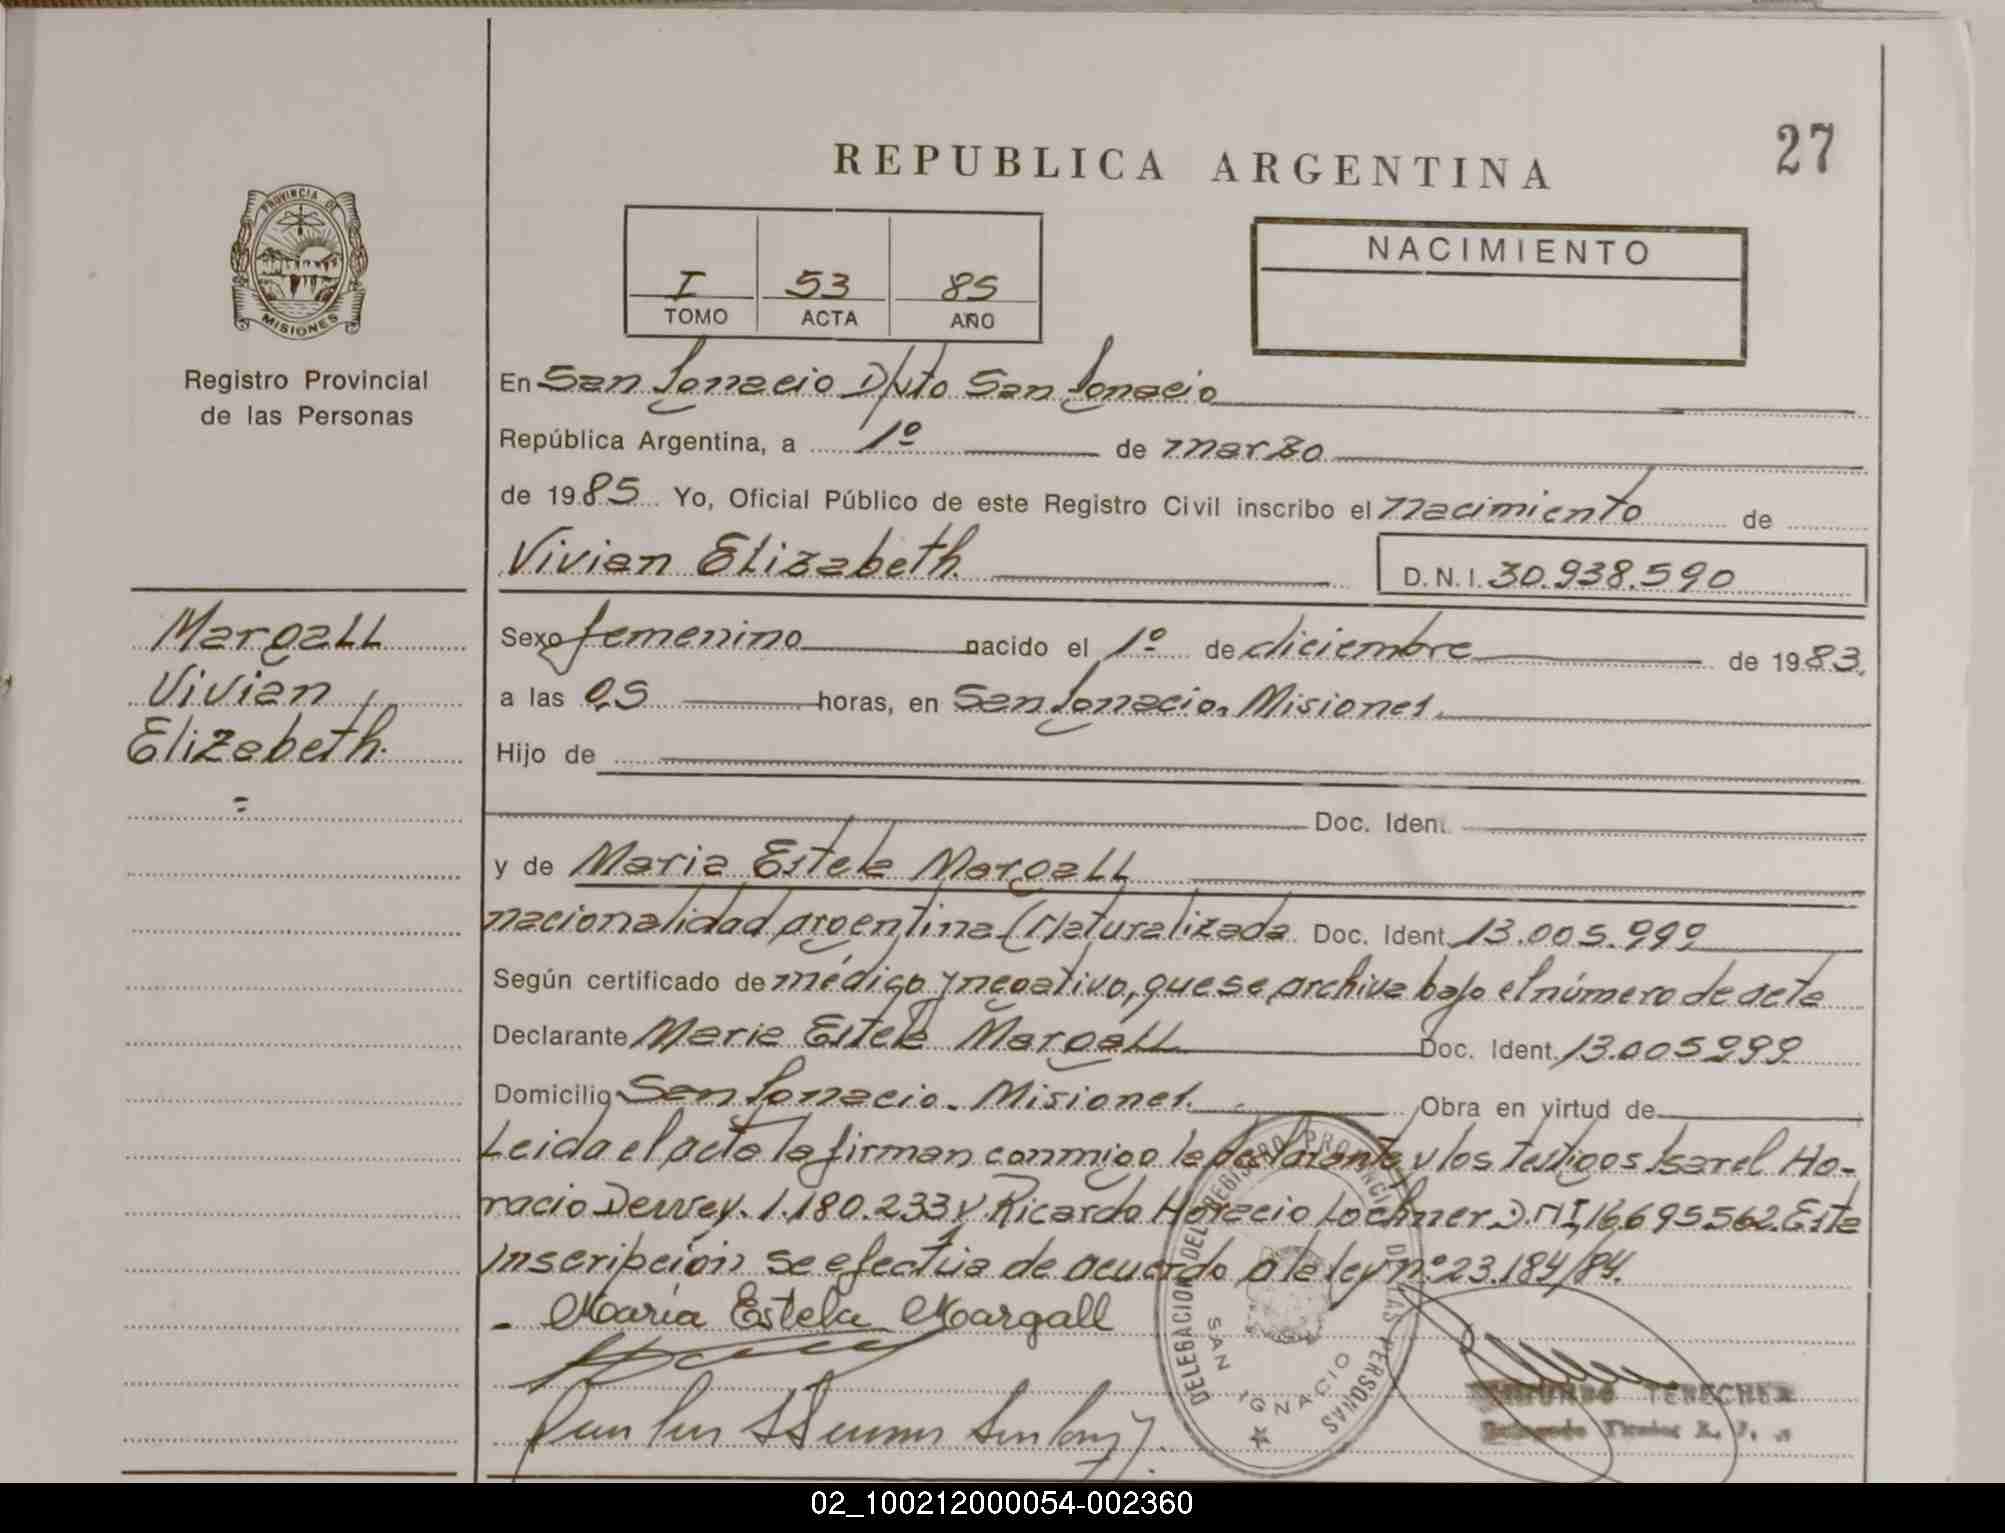 27
REPUBLICA ARGENTINA
PROVINCIA DE
MISIONES
Registro Provincial
de las Personas
I 53 85
TOMO ACTA AÑO
NACIMIENTO
En San Ignacio D/pto San Ignacio
República Argentina, a 1º de marzo
de 1985 Yo, Oficial Público de este Registro Civil inscribo el nacimiento de
Vivian Elizabeth D.N.I. 30.938.590
Margall
Vivian
Elizabeth.
Sexo femenino nacido el 1º de diciembre de 1983.
a las 0,5 horas, en San Ignacio. Misiones.
Hijo de
Doc. Iden.
y de Maria Estela Margall
nacionalidad argentina (Naturalizada Doc. Ident. 13.005.999
Según certificado de médico y negativo, que se archiva bajo el número de acta
Declarante Maria Estela Margall Doc. Ident. 13.005999
Domicilio San Ignacio. Misiones. Obra en virtud de
Leida el acta la firman conmigo la declarante y los testigos Isarel Ho-
racio Dewey. 1.180.233 y Ricardo Horacio Lochner D.NI, 16695562. Esta
inscripción se efectúa de acuerdo a la ley nº 23.184/84.
- María Estela Margall
DELEGACION DEL REGISTRO PROVINCIAL DE LAS PERSONAS
SAN IGNACIO
02_100212000054-002360